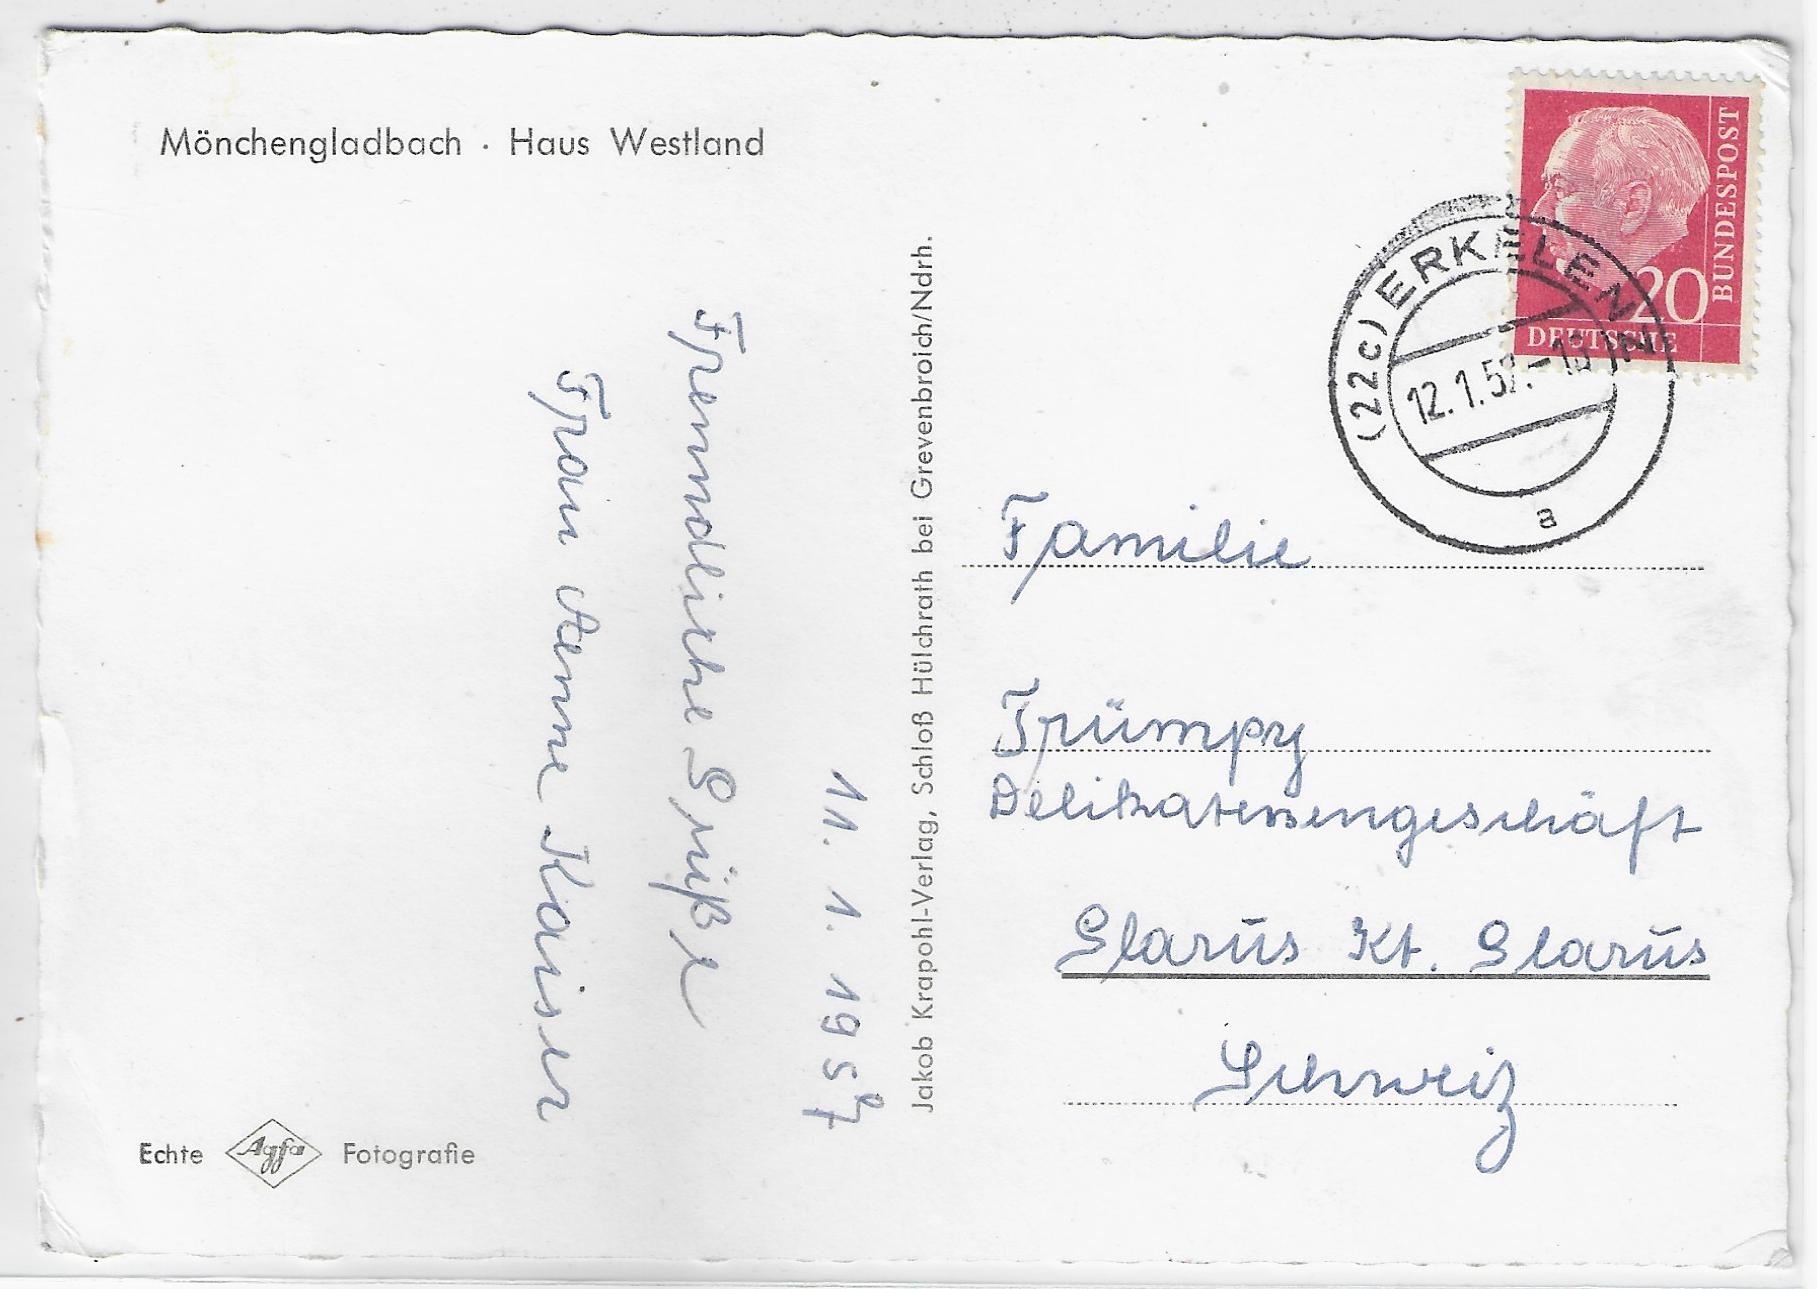 Mönchengladbach · Haus Westland
11. 1. 1957
Freundliche Grüße
Frau Aenne Kaiser
Echte Agfa Fotografie
Jakob Krapohl-Verlag, Schloß Hülchrath bei Grevenbroich/Ndrh.
20
BUNDESPOST
DEUTSCHE
(22c) ERKELENZ
12.1.57.-18
a
Familie
Trümpy
Delikatessengeschäft
Glarus Kt. Glarus
Schweiz